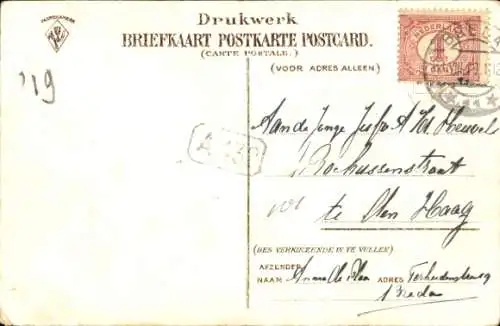 Drukwerk
BRIEFKAART POSTKARTE POSTCARD.
(CARTE POSTALE.)
(VOOR ADRES ALLEEN.)
NEDERLAND
1
'19
Aan de Jonge Jusfr A v.d. Heuvel
Rochussenstraat
te Den Haag
(DES VERKIEZENDE IN TE VULLEN)
AFZENDER
NAAM Anna de Man ADRES Terheidenstraat
Breda